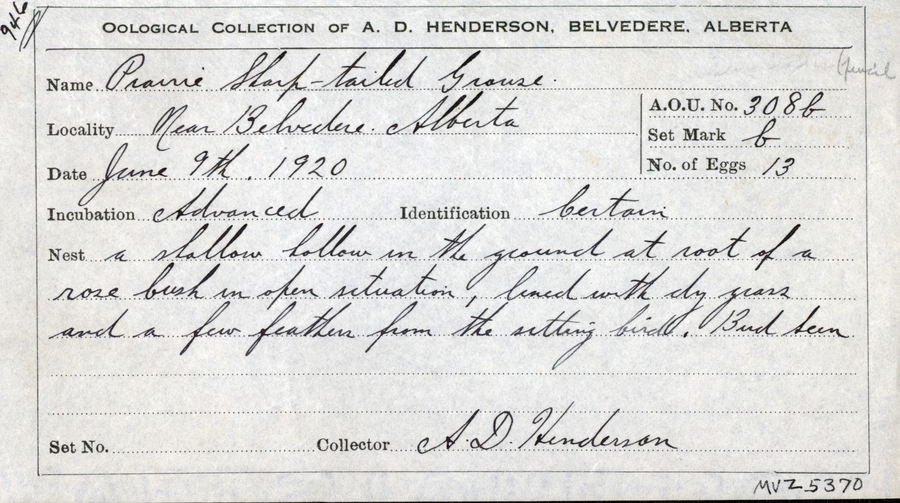 946
OOLOGICAL COLLECTION OF A. D. HENDERSON, BELVEDERE, ALBERTA
pencil
Name Prairie Sharp-tailed Grouse.
A.O.U. No. 308b
Locality Near Belvedere. Alberta
Set Mark b
Date June 9th. 1920
No. of Eggs 13
Incubation Advanced Identification Certain
Nest a shallow hollow in the ground at root of a
rose bush in open situation, lined with dry grass
and a few feathers from the sitting bird. Bird seen
Set No. Collector A. D. Henderson
MVZ 5370